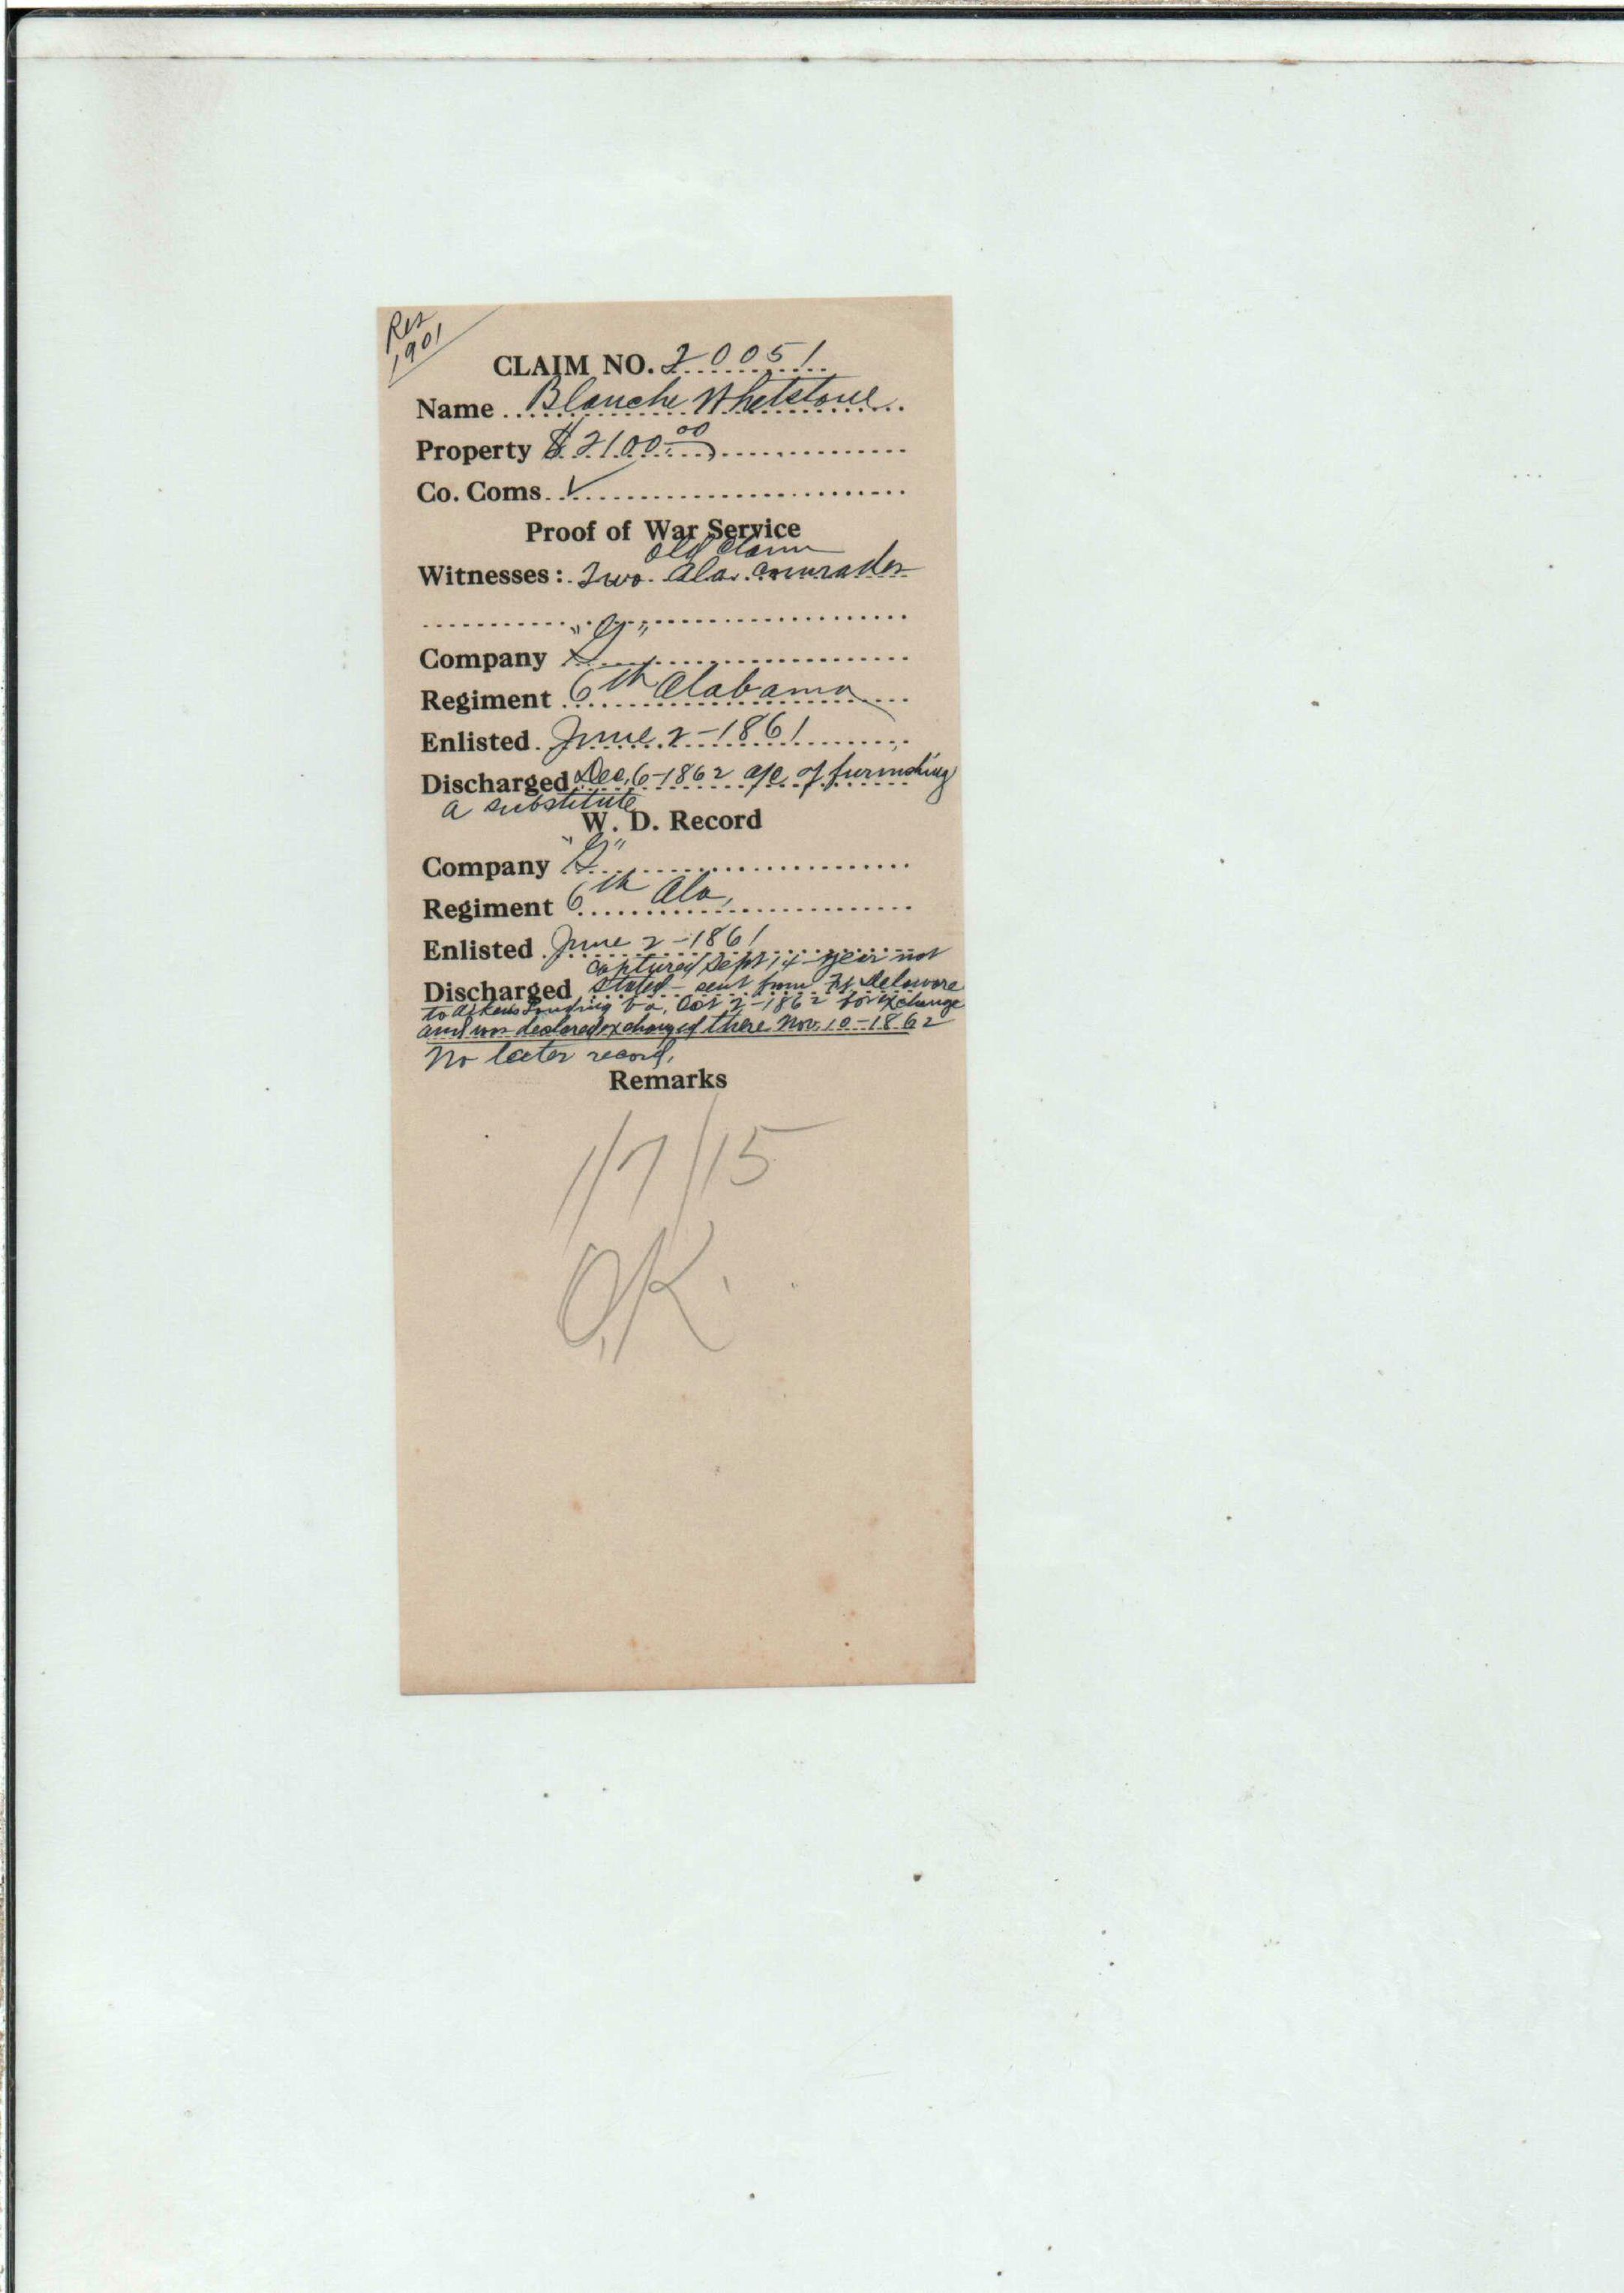 Res
1901
CLAIM NO. 20051
Name Blanche Whetstone
Property $2100.00
Co. Coms. ✓
Proof of War Service
Old Claim
Witnesses: Two Ala. Comrades
Company "G"
Regiment 6th Alabama
Enlisted June 2-1861
Discharged Dec. 6-1862 a/c of furnishing
a substitute
W. D. Record
Company "G"
Regiment 6th Ala,
Enlisted June 2-1861
captured Sept 14 - year not
Discharged stated - sent from Ft Delaware
to Aikens Landing Va. Oct 2-1862 for exchange
and was declared exchanged there Nov. 10-1862
No later record.
Remarks
1/7/15
O.K.